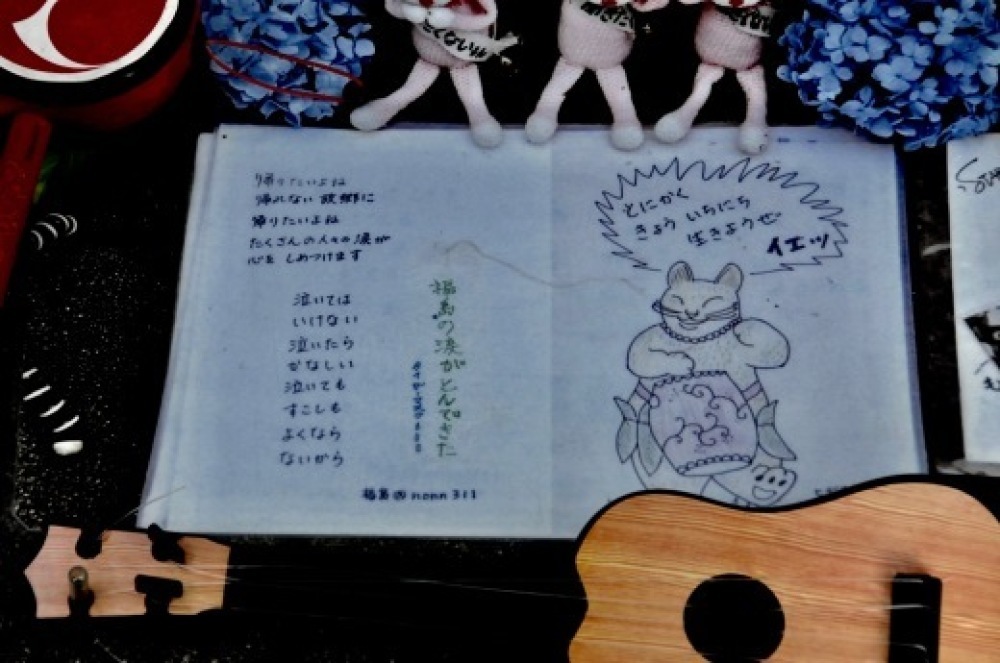 帰りたいよね
帰れない故郷に
帰りたいよね
たくさんの人々の涙が
心をしめつけます
泣いては
いけない
泣いたら
かなしい
泣いても
すこしも
よくなら
ないから
福島の涙がとんできた
福島@nonn311
とにかく
きょう いちにち
生きようぜ
イエッ